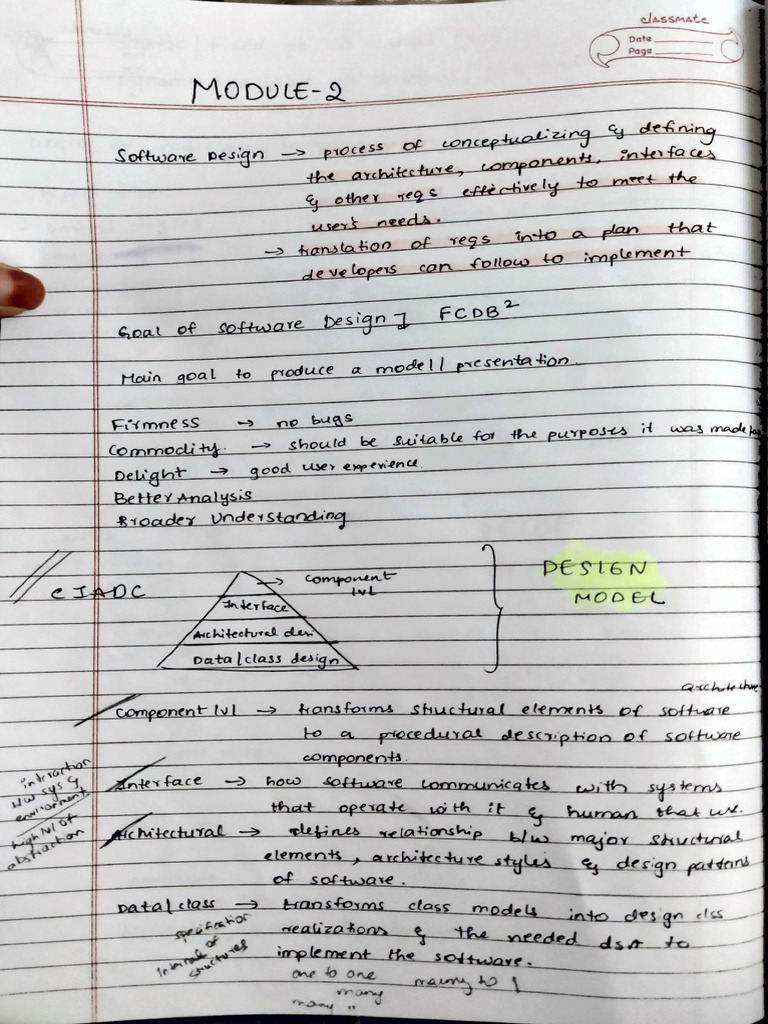 classmate
Date
Page
MODULE-2
Software Design → process of conceptualizing & defining
the architecture, components, interfaces
& other reqs effectively to meet the
user's needs.
→ translation of reqs into a plan that
developers can follow to implement
Goal of Software Design ] FCDB²
Main goal to produce a model / presentation.
Firmness → no bugs
Commodity. → should be suitable for the purposes it was made for
Delight → good user experience.
Better Analysis
Broader Understanding
CIADC
→ component
lvl
Interface
Architectural des.
Data/class design
DESIGN
MODEL
architecture
Component lvl → transforms structural elements of software
to a procedural description of software
components.
interaction
b/w sys &
environment
high lvl of
abstraction
Interface → how software communicates with systems
that operate with it & human that use.
Architectural → defines relationship b/w major structural
elements, architecture styles & design patterns
of software.
Data/class → transforms class models into design clss
realizations & the needed dsA to
implement the software.
specification
internal of
structures
one to one many to 1
many
many "